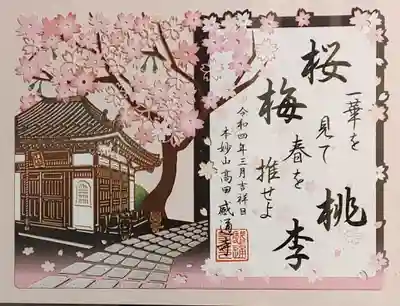 桜梅桃李
一華を見て春を推せよ
令和四年三月吉祥日
本妙山高田感通寺